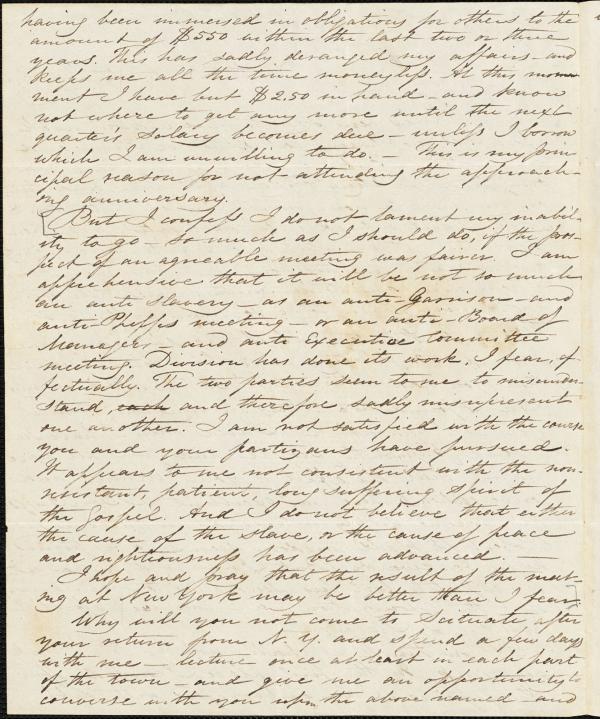 having been immersed in obligations for others to the
amount of $550 within the last two or three
years. This has sadly deranged my affairs - and
keeps me all the time moneyless. At this mom
ment I have but $2,50 in hand - and know
not where to get any more until the next
quarter's salary becomes due - unless I borrow
which I am unwilling to do. - This is my prin
cipal reason for not attending the approach-
ing anniversary.
[But I confess I do not lament my inabil-
ity to go - so much as I should do, if the pros-
pect of an agreeable meeting was fairer. I am
apprehensive that it will be not so much
an anti slavery - as an anti-Garrison - and
anti-Phelps meeting - or an anti-Board of
Managers - and anti Executive Committee
meeting. Division has done its work, I fear, ef
fectually. The two parties seem to me to misunder-
stand, each and therefore sadly misrepresent
one another. I am not satisfied with the course
you and your partizans have pursued.
It appears to me not consistent with the non-
resistant, patient, long suffering spirit of
the Gospel. And I do not believe that either
the cause of the slave, or the cause of peace
and righteousness has been advanced. -
I hope and pray that the result of the meet-
ing at New York may be better than I fear.]
Why will you not come to Scituate, after
your return from N. Y. and spend a few days
with me - lecture once at least in each part
of the town - and give me an opportunity to
converse with you upon the above named - and